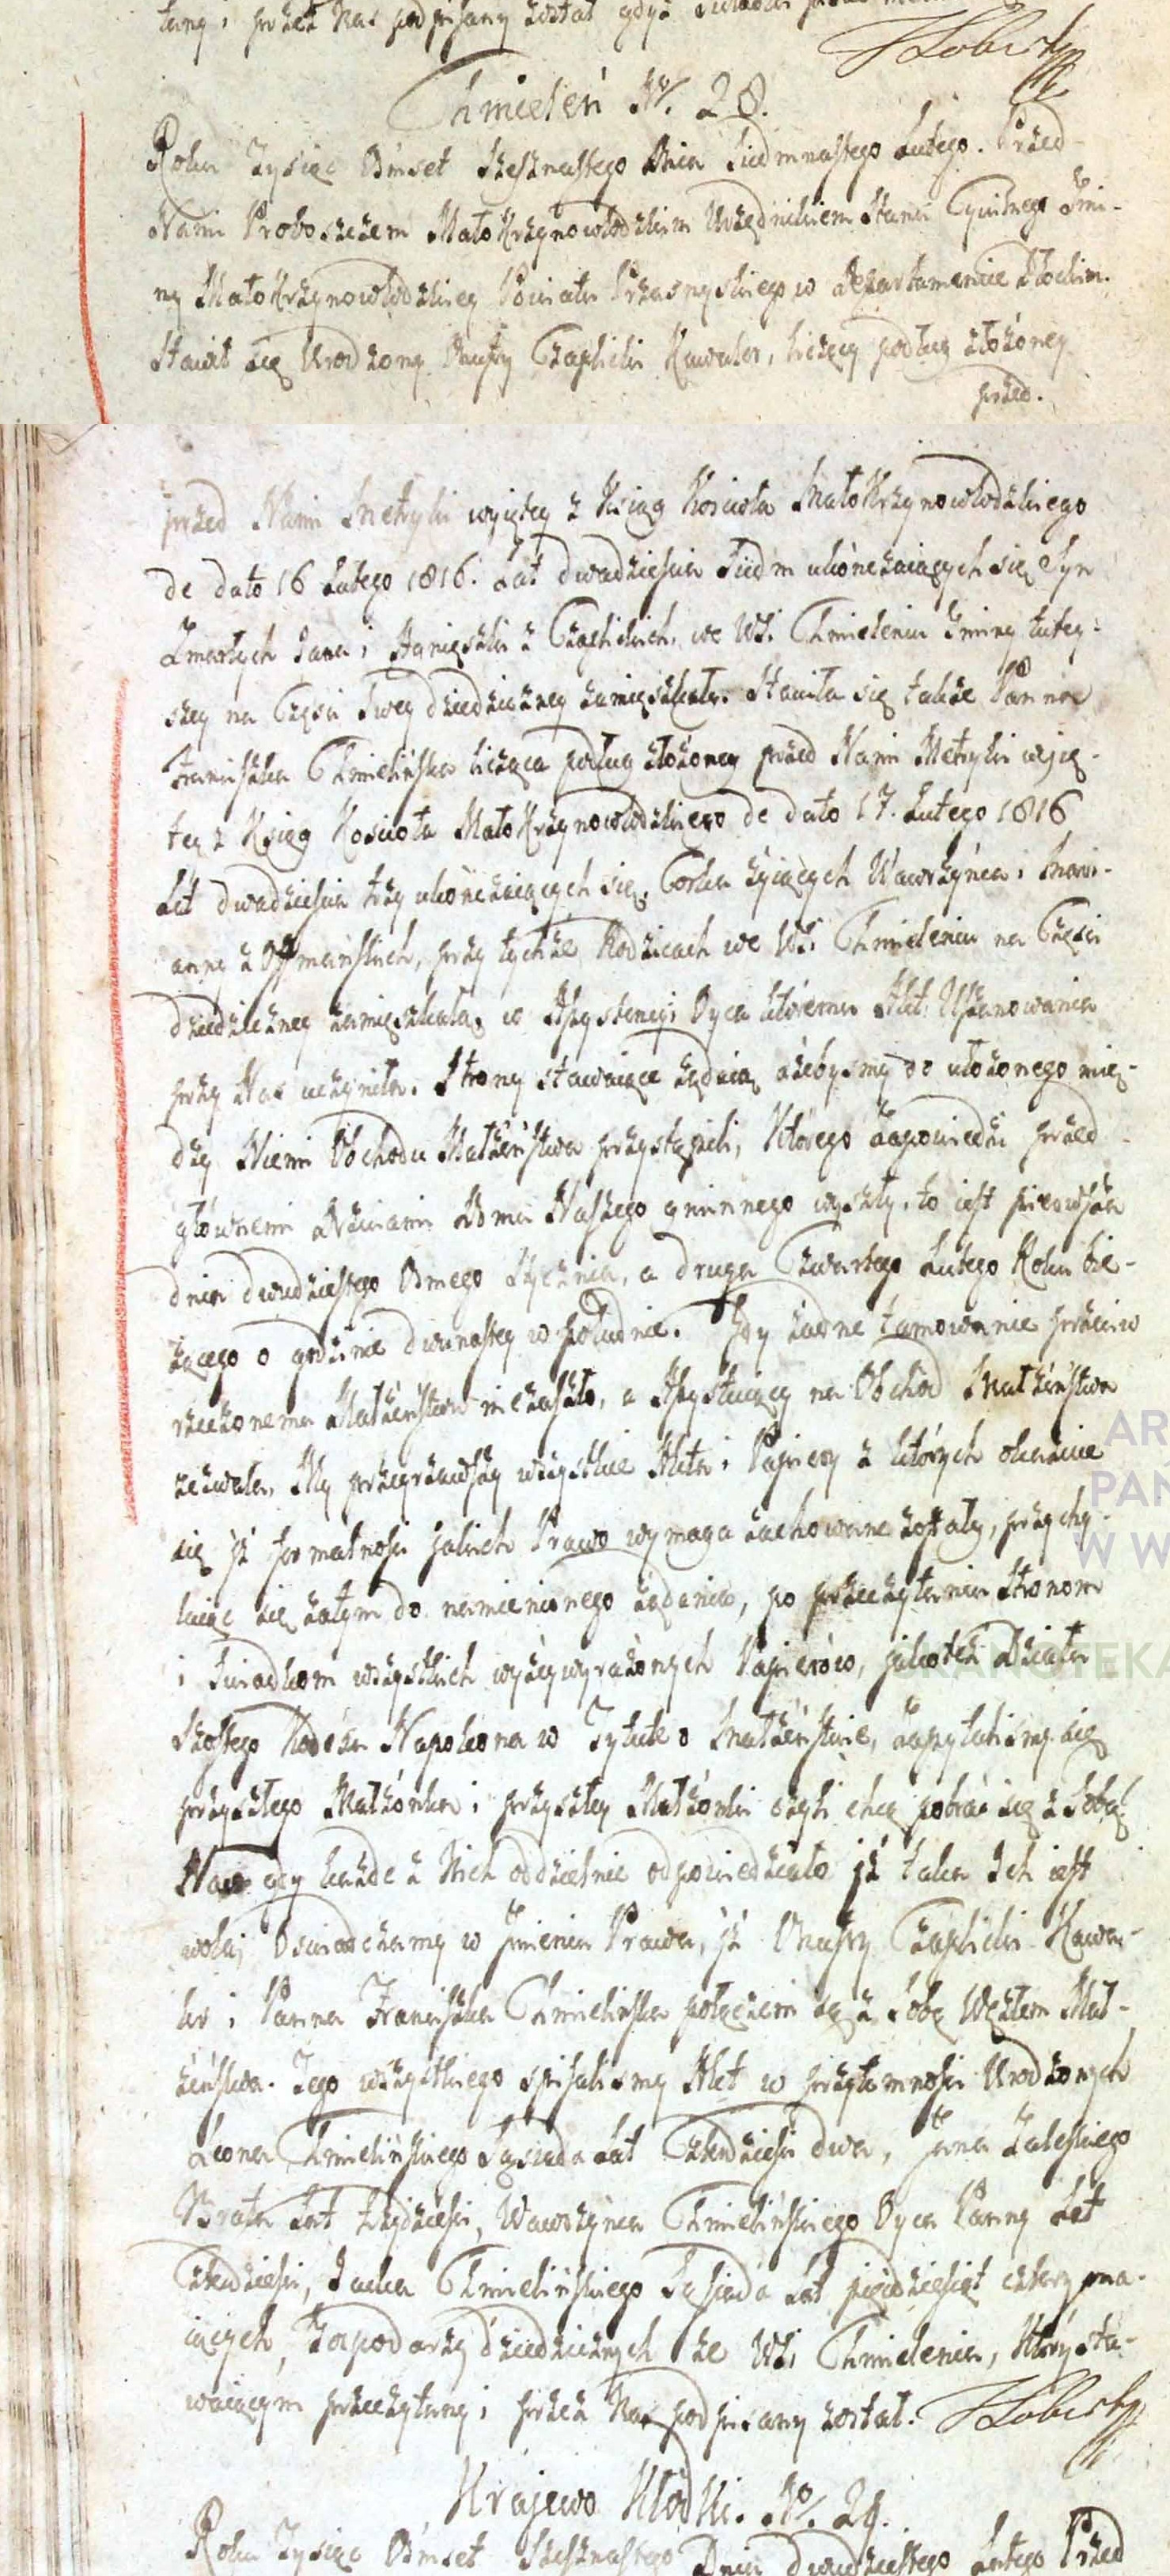 tany i przez Nas podpisany został gdyż
Chmieleń No. 28.
Roku Tysiąc Ośmset Szesznastego Dnia Siedmnastego Lutego. Przed
Nami Proboszczem MałoKrzynowłodzkim Urzędnikiem Stanu Cywilnego Gmi-
ny MałoKrzynowłodzkiey Powiatu Przasnyskiego w Departamencie Płockim.
Stawił się Urodzony Onufry Czaplicki Kawaler, liczący podług złożoney
przed.
przed Nami Metryki wyjętey z Ksiąg Kościoła MałoKrzynowłodzkiego
de dato 16 Lutego 1816. Lat dwadzieścia Siedm ukończaiących się Syn
Zmarłych Jana i Agnieszki z Czaplickich, we Wsi Chmieleniu Gminy tutey-
szey na Części Swey dziedziczney zamięszkały. Stawiła się także Panna
Franciszka Chmielińska licząca podług złożoney przed Nami Metryki wyję-
tey z Ksiąg Kościoła MałoKrzynowłodzkiego de dato 17. Lutego 1816
Lat dwadzieścia trzy ukończaiących się, Corka żyiących Wawrzyńca i Mari-
anny z Ossmańskich, przy tychże Rodzicach we Wsi Chmieleniu na Części
dziedziczney zamięszkała, w Assystencyi Oyca któremu Akt Uszanowania
przy Nas uczyniła. Strony stawaiące żądaią ażebysmy do ułożonego mię-
dzy Niemi Obchodu Małżeństwa przystąpili, Którego Zapowiedzi przed
głównemi Drzwiami Domu Naszego gminnego wyszły, to iest pierwsza
dnia dwudziestego Osmego Stycznia, a druga Czwartego Lutego Roku bie-
żącego o godzinie dwunastey w południe. Gdy żadne tamowanie przeciw
rzeczonemu Małżeństwu nie zaszło, a Assystuiący na Obchód Małżeństwa
zezwala, My przeyrzawszy wszystkie Akta i Papiery z których okazuie
się iż formalności jakich Prawo wymaga zachowane zostały, przychy-
laiąc się zatym do namienionego żądania, po przeczytaniu Stronom
i Świadkom wszystkich wyżey wyrażonych Papierów, jakoteż Działu
Szóstego Kodexu Napoleona w Tytule o Małżeństwie, zapytalismy się
przyszłego Małżonka i przyszłey Małżonki czyli chcą pobrać się z Sobą?
Na co gdy każde z Nich oddzielnie odpowiedziało iż taka Ich iest
wola; Oswiadczamy w Jmieniu Prawa, iż Onufry Czaplicki Kawa-
ler i Panna Franciszka Chmielińska połączeni są z Sobą Węzłem Mał-
żeństwa. Tego wszystkiego spisalismy Akt w przytomności Urodzonych
Leona Chmielińskiego Sąsiada Lat Czterdzieści dwa, Jana Zaleskiego
Brata Lat trzydzieści, Wawrzyńca Chmielińskiego Oyca Panny Lat
Czterdzieści, Jacka Chmielińskiego Sąsiada Lat pięćdziesiąt cztery ma-
iących, Gospodarzy dziedzicznych ze Wsi Chmielenia, Który sta-
waiącym przeczytany i przez Nas podpisany został.
Krajewo Kłódki. No. 29.
Roku Tysiąc Ośmset Szesznastego Dnia dwudziestego Lutego Przed